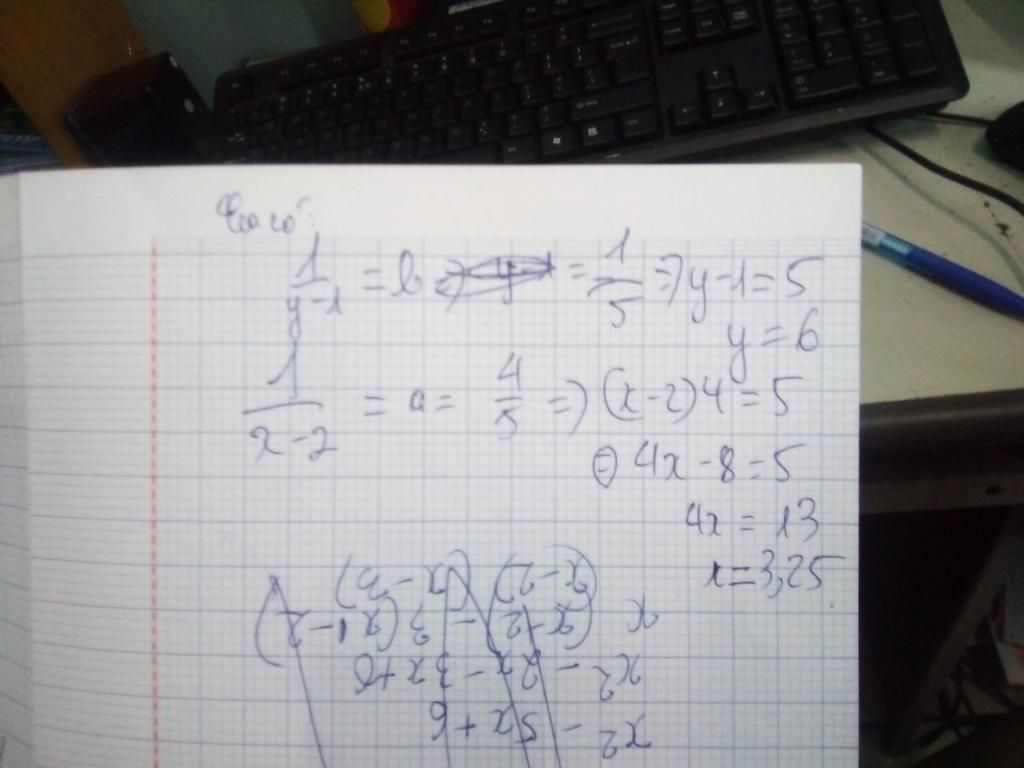 Ta có:
1/(y-1) = b => = 1/5 => y-1 = 5
y = 6
1/(x-2) = a = 4/5 => (x-2)4 = 5
⇔ 4x - 8 = 5
4x = 13
x = 3,25
(x-2)(x-3)
x(x-2) - 3(x-2)
x² - 2x - 3x + 6
x² - 5x + 6